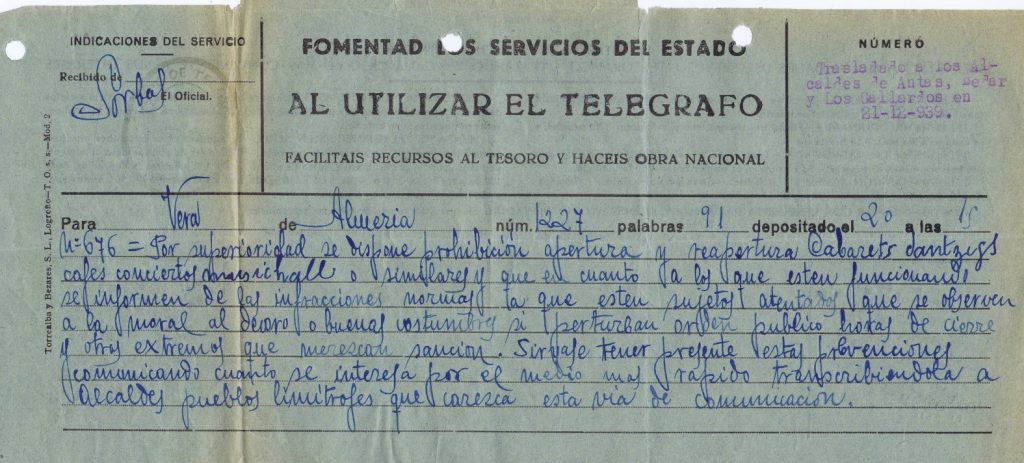 INDICACIONES DEL SERVICIO
Recibido de
El Oficial.
FOMENTAD LOS SERVICIOS DEL ESTADO
AL UTILIZAR EL TELEGRAFO
FACILITAIS RECURSOS AL TESORO Y HACEIS OBRA NACIONAL
NÚMERO
Trasladado a los Al-
caldes de Antas, Bedar
y Los Gallardos en
21-12-939.
Torrealba y Bezares, S. L., Logroño—T. O. s. s.—Mod. 2
Para Vera de Almeria núm. 1227 palabras 91 depositado el 20 a las 15
Nº 676 = Por superioridad se dispone prohibición apertura y reapertura Cabarets dantzigs
cafes conciertos musichall o similares y que en cuanto a los que esten funcionando
se informen de las infracciones normas la que esten sujetos atentados que se observen
a la moral al decoro o buenas costumbres si perturban orden publico horas de cierre
y otros extremos que merescan sancion. Sirvase tener presente estas prevenciones
comunicando cuanto se interesa por el medio mas rapido transcribiendola a
Alcaldes pueblos limitrofes que caresca esta via de comunicación.